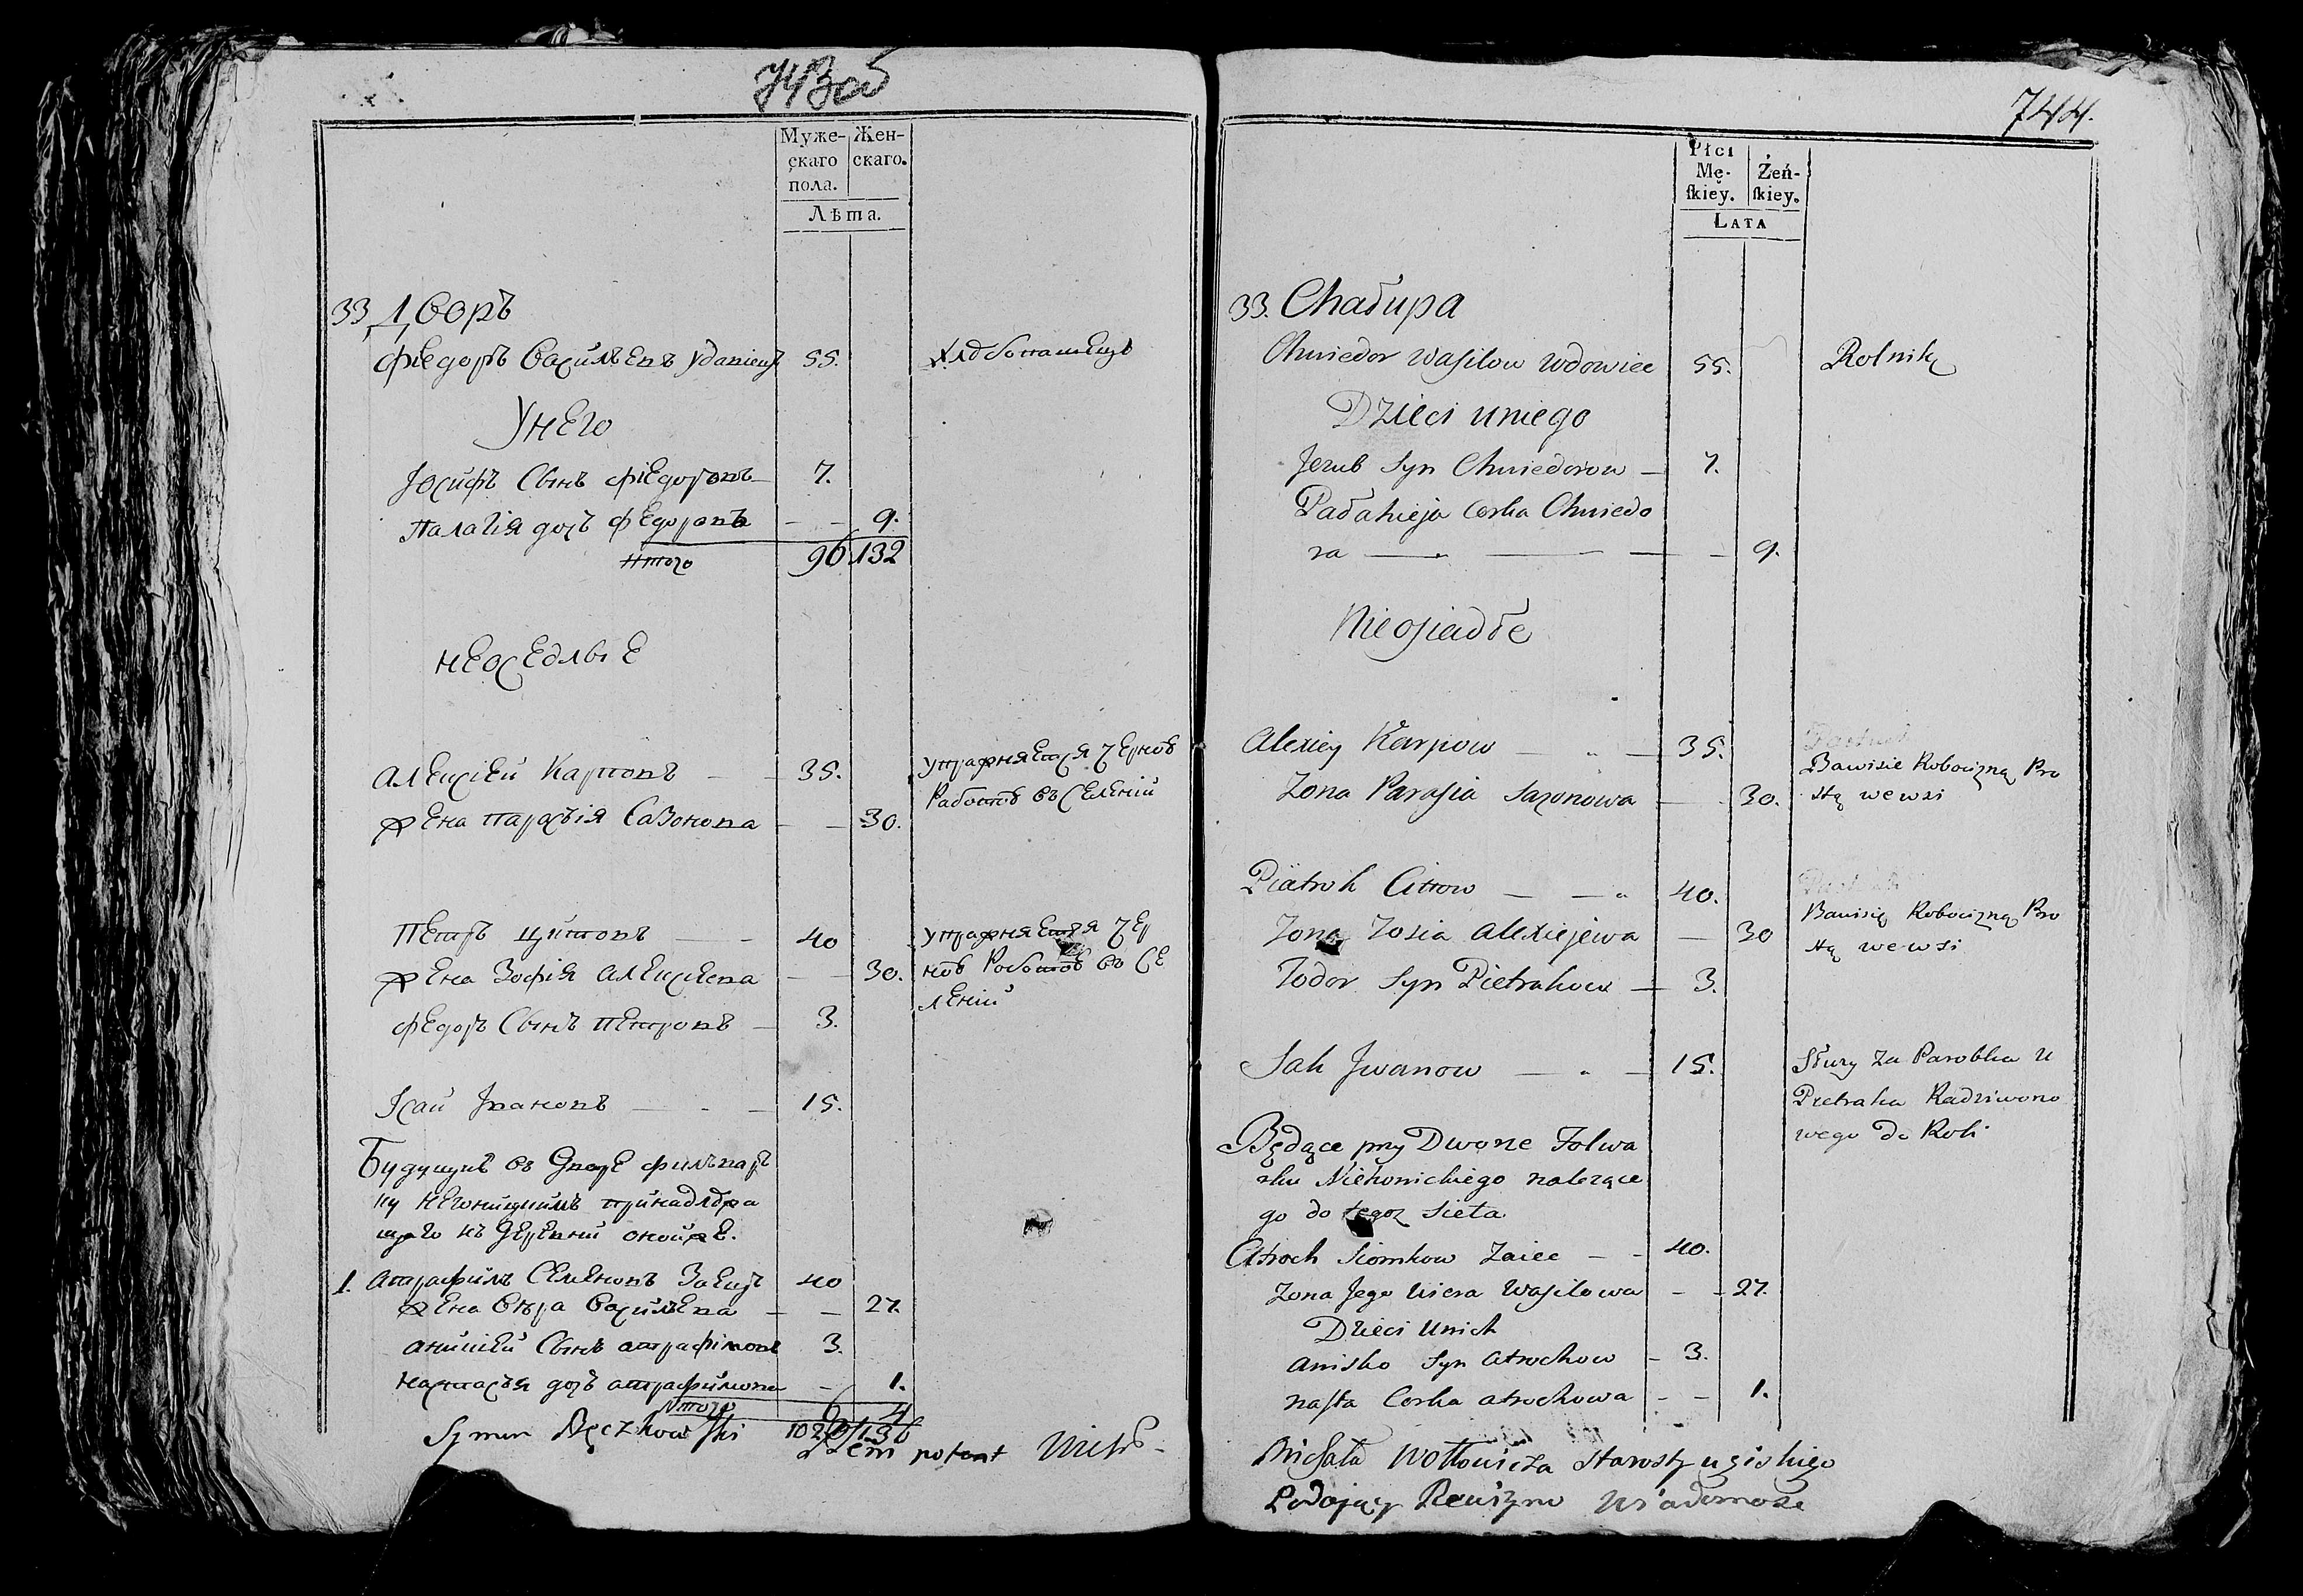 Муже-
скаго
пола.
Жен-
скаго.
Лѣта.
33 Дворъ
Фіедоръ Василѣевъ Удовіецъ 55. Хлѣбопашецъ
У него
Іосифъ Сынъ Фіедоровъ 7.
Палагія дочъ Федорова 9.
Итого 96 132
Неоседлые
Алексіей Карповъ 35. упражняется черною
работою въ селеніи
жена Парасѣія Сазонова 30.
Петръ Цитовъ 40 упражняется чер
ною работою въ се
леніи
жена Зофія Алексіева 30.
Федоръ Сынъ Петровъ 3.
Ісай Івановъ 15.
Будущие въ Дворе филѣвар
ку принадлежа
щего къ деревни оной же.
1. Атрафимъ Семеновъ Заецъ 40
жена Вѣра Василѣева 27.
Сынъ Атрафімовъ 3.
Настасѣя дочъ Атрафимова 1.
Итого 6 4
102 136
Plenipotent
744.
Płci
Mę-
skiey.
Żeń-
skiey.
Lata
33. Chałupa
Chwiedor Wasilow Wdowiec 55. Rolnik
Dzieci u niego
Jezub Syn Chwiedorow 7.
Pałahieja Corka Chwiedo
ra 9.
Nieosiadłe
Alexiey Karpow 35. Bawi sie Robocizną Pro
stą we wsi
Zona Parasia Sazonowa 30.
Piatruk Citow 40. Bawi się Robocizną Pro
stą we wsi
Zona Zosia Alexiejewa 30
Todor Syn Pietrukow 3.
Sak Jwanow 15. Służy za Parobka u
Pietraka Radziwono
wego do Roli
Będące przy Dworze Folwa
rku Niehonickiego nalezące
go do tegoz Sieła
Atroch Siomkow Zaiec 40.
Zona Jego Wiera Wasilowa 27.
Dzieci u nich
Anisko Syn Atrochow 3.
Nasta Corka Atrochowa 1.
Michała Wołłowicza Starosty
Podający Rewizyną Wiadomosc